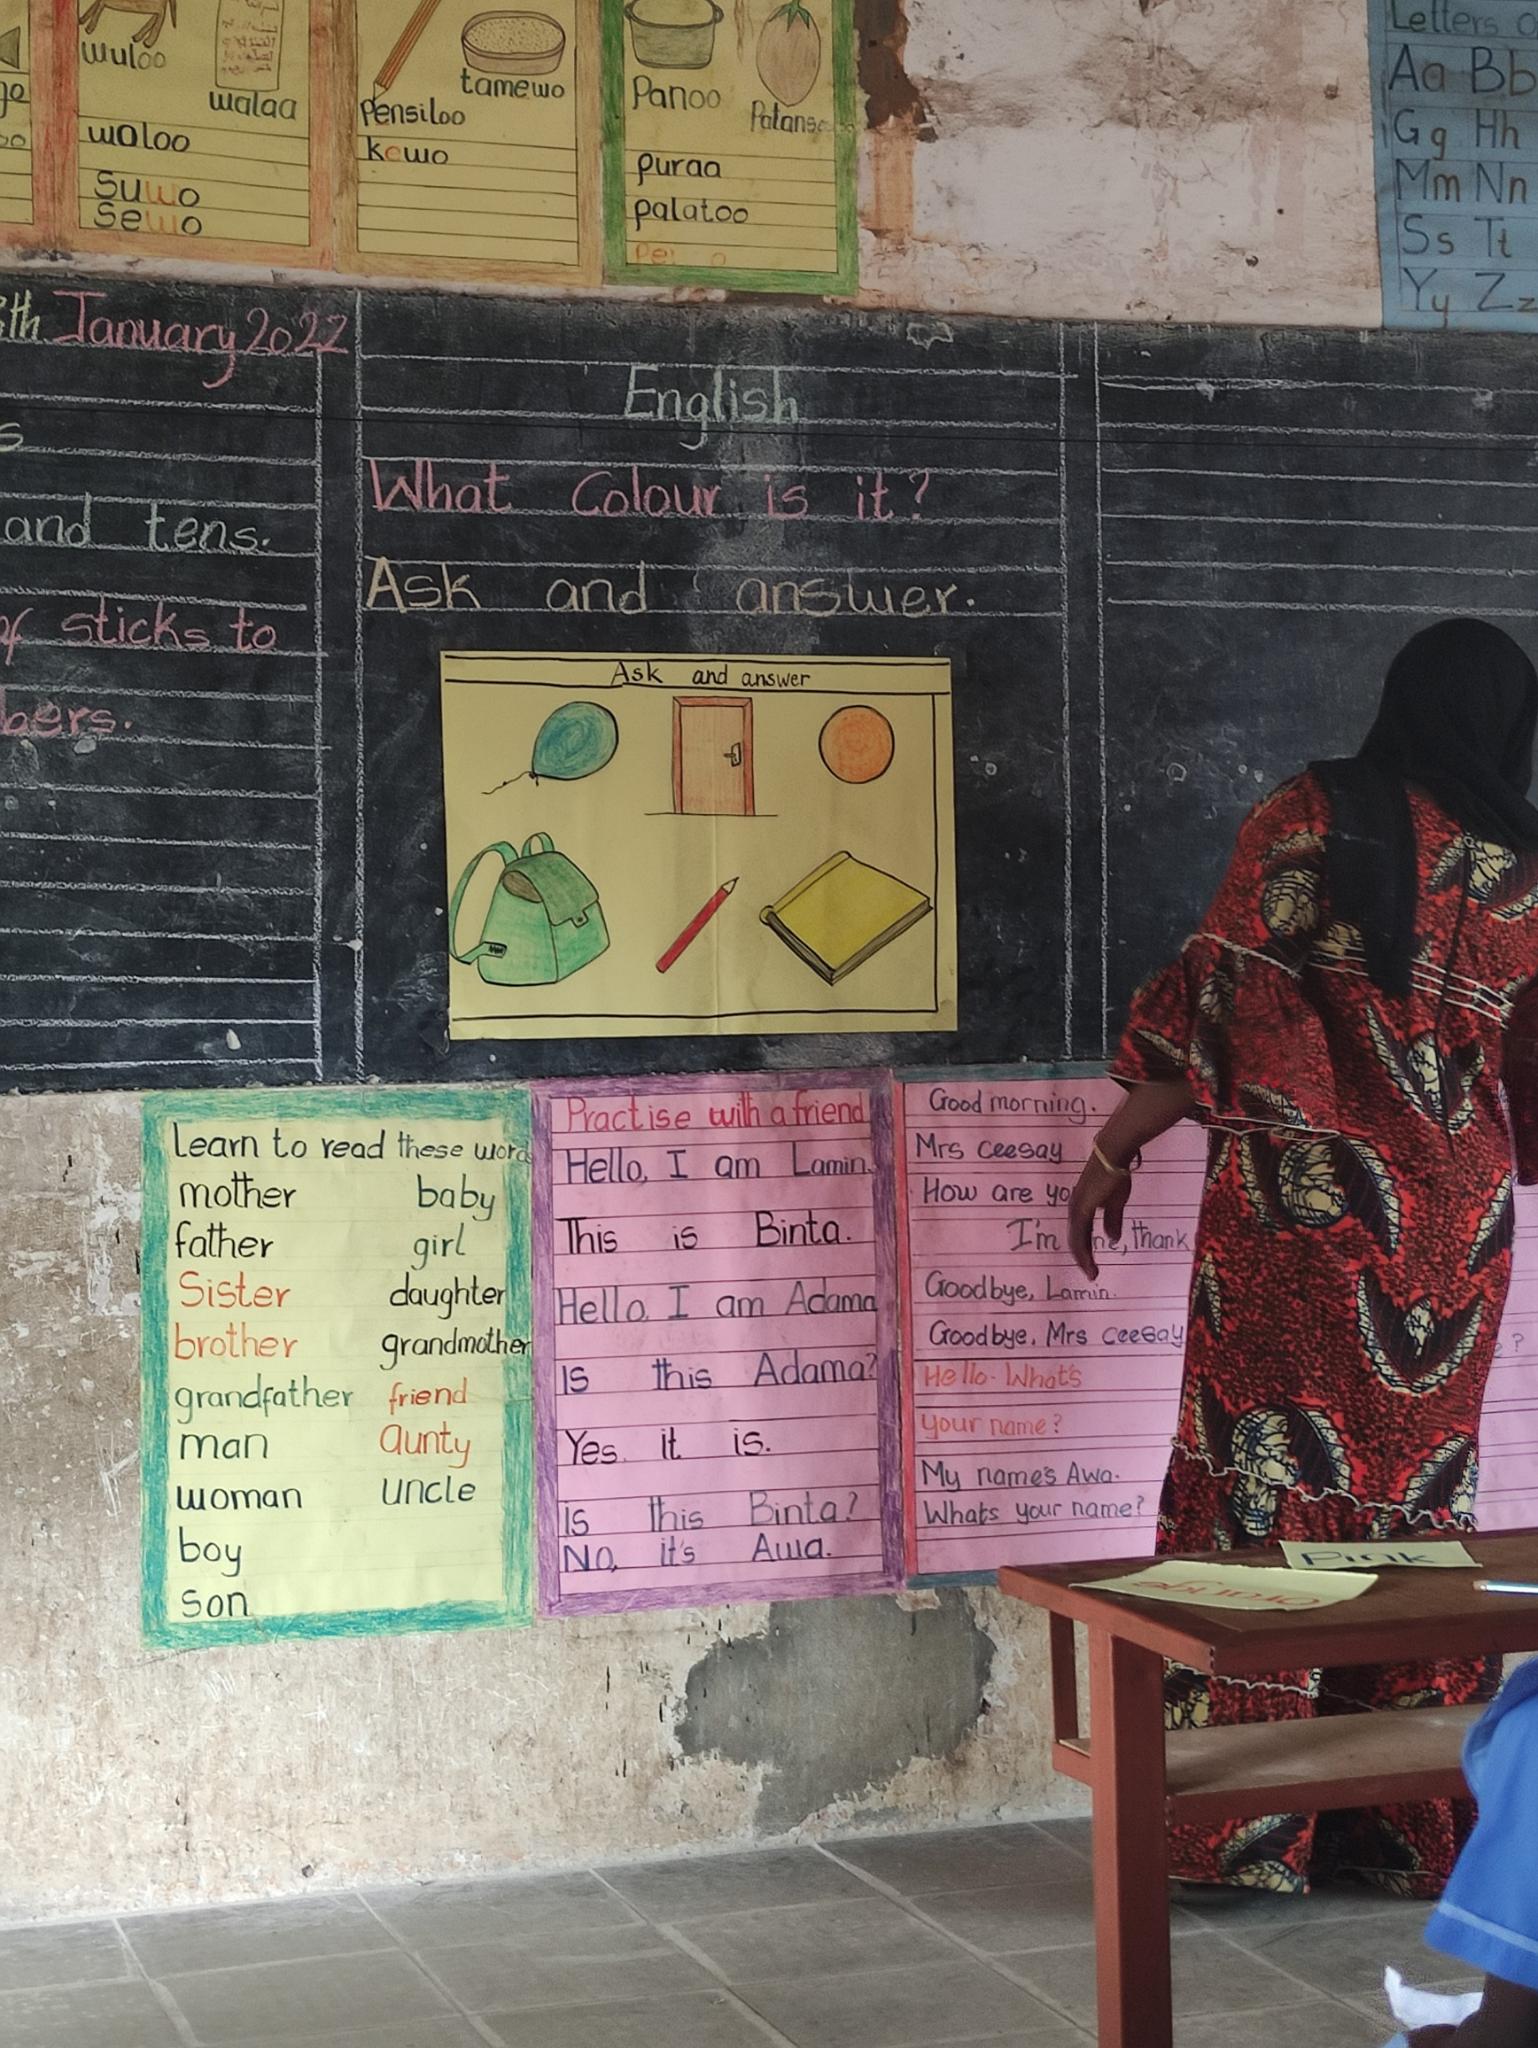 wuloo
walaa
waloo
suwo
sewo
Pensiloo
tamewo
kewo
Panoo
puraa
palatoo
Letters
Aa Bb
Gg Hh
Mm Nn
Ss Tt
Yy Zz
January 2022
and tens.
of sticks to
English
What Colour is it?
Ask and answer.
Ask and answer
Learn to read these word
mother baby
father girl
Sister daughter
brother grandmother
grandfather friend
man aunty
woman uncle
boy
son
Practise with a friend
Hello, I am Lamin.
This is Binta.
Hello, I am Adama
Is this Adama?
Yes, it is.
Is this Binta?
No, it's Awa.
Good morning.
Mrs ceesay
How are yo
I'm ne, thank
Goodbye, Lamin.
Goodbye, Mrs ceesay
Hello. What's
your name?
My name's Awa.
Whats your name?
Pink
orange